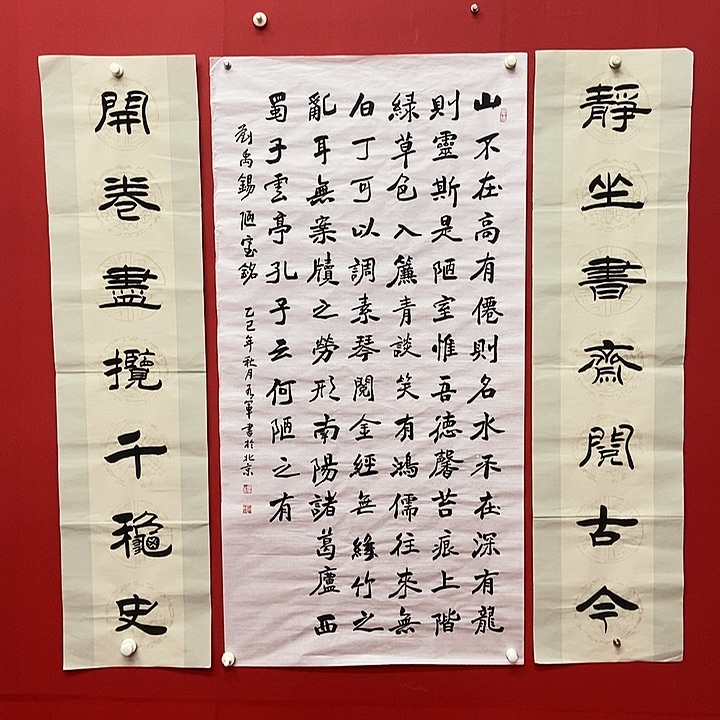 靜坐書齋閱古今
山不在高有僊則名水不在深有龍
則靈斯是陋室惟吾德馨苔痕上階
緑草色入簾青談笑有鴻儒往來無
白丁可以調素琴閱金經無緣竹之
亂耳無案牘之勞形南陽諸葛廬西
蜀子雲亭孔子云何陋之有
劉禹錫陋室銘 乙巳年秋月軍書於北京
開卷盡攬千龝史